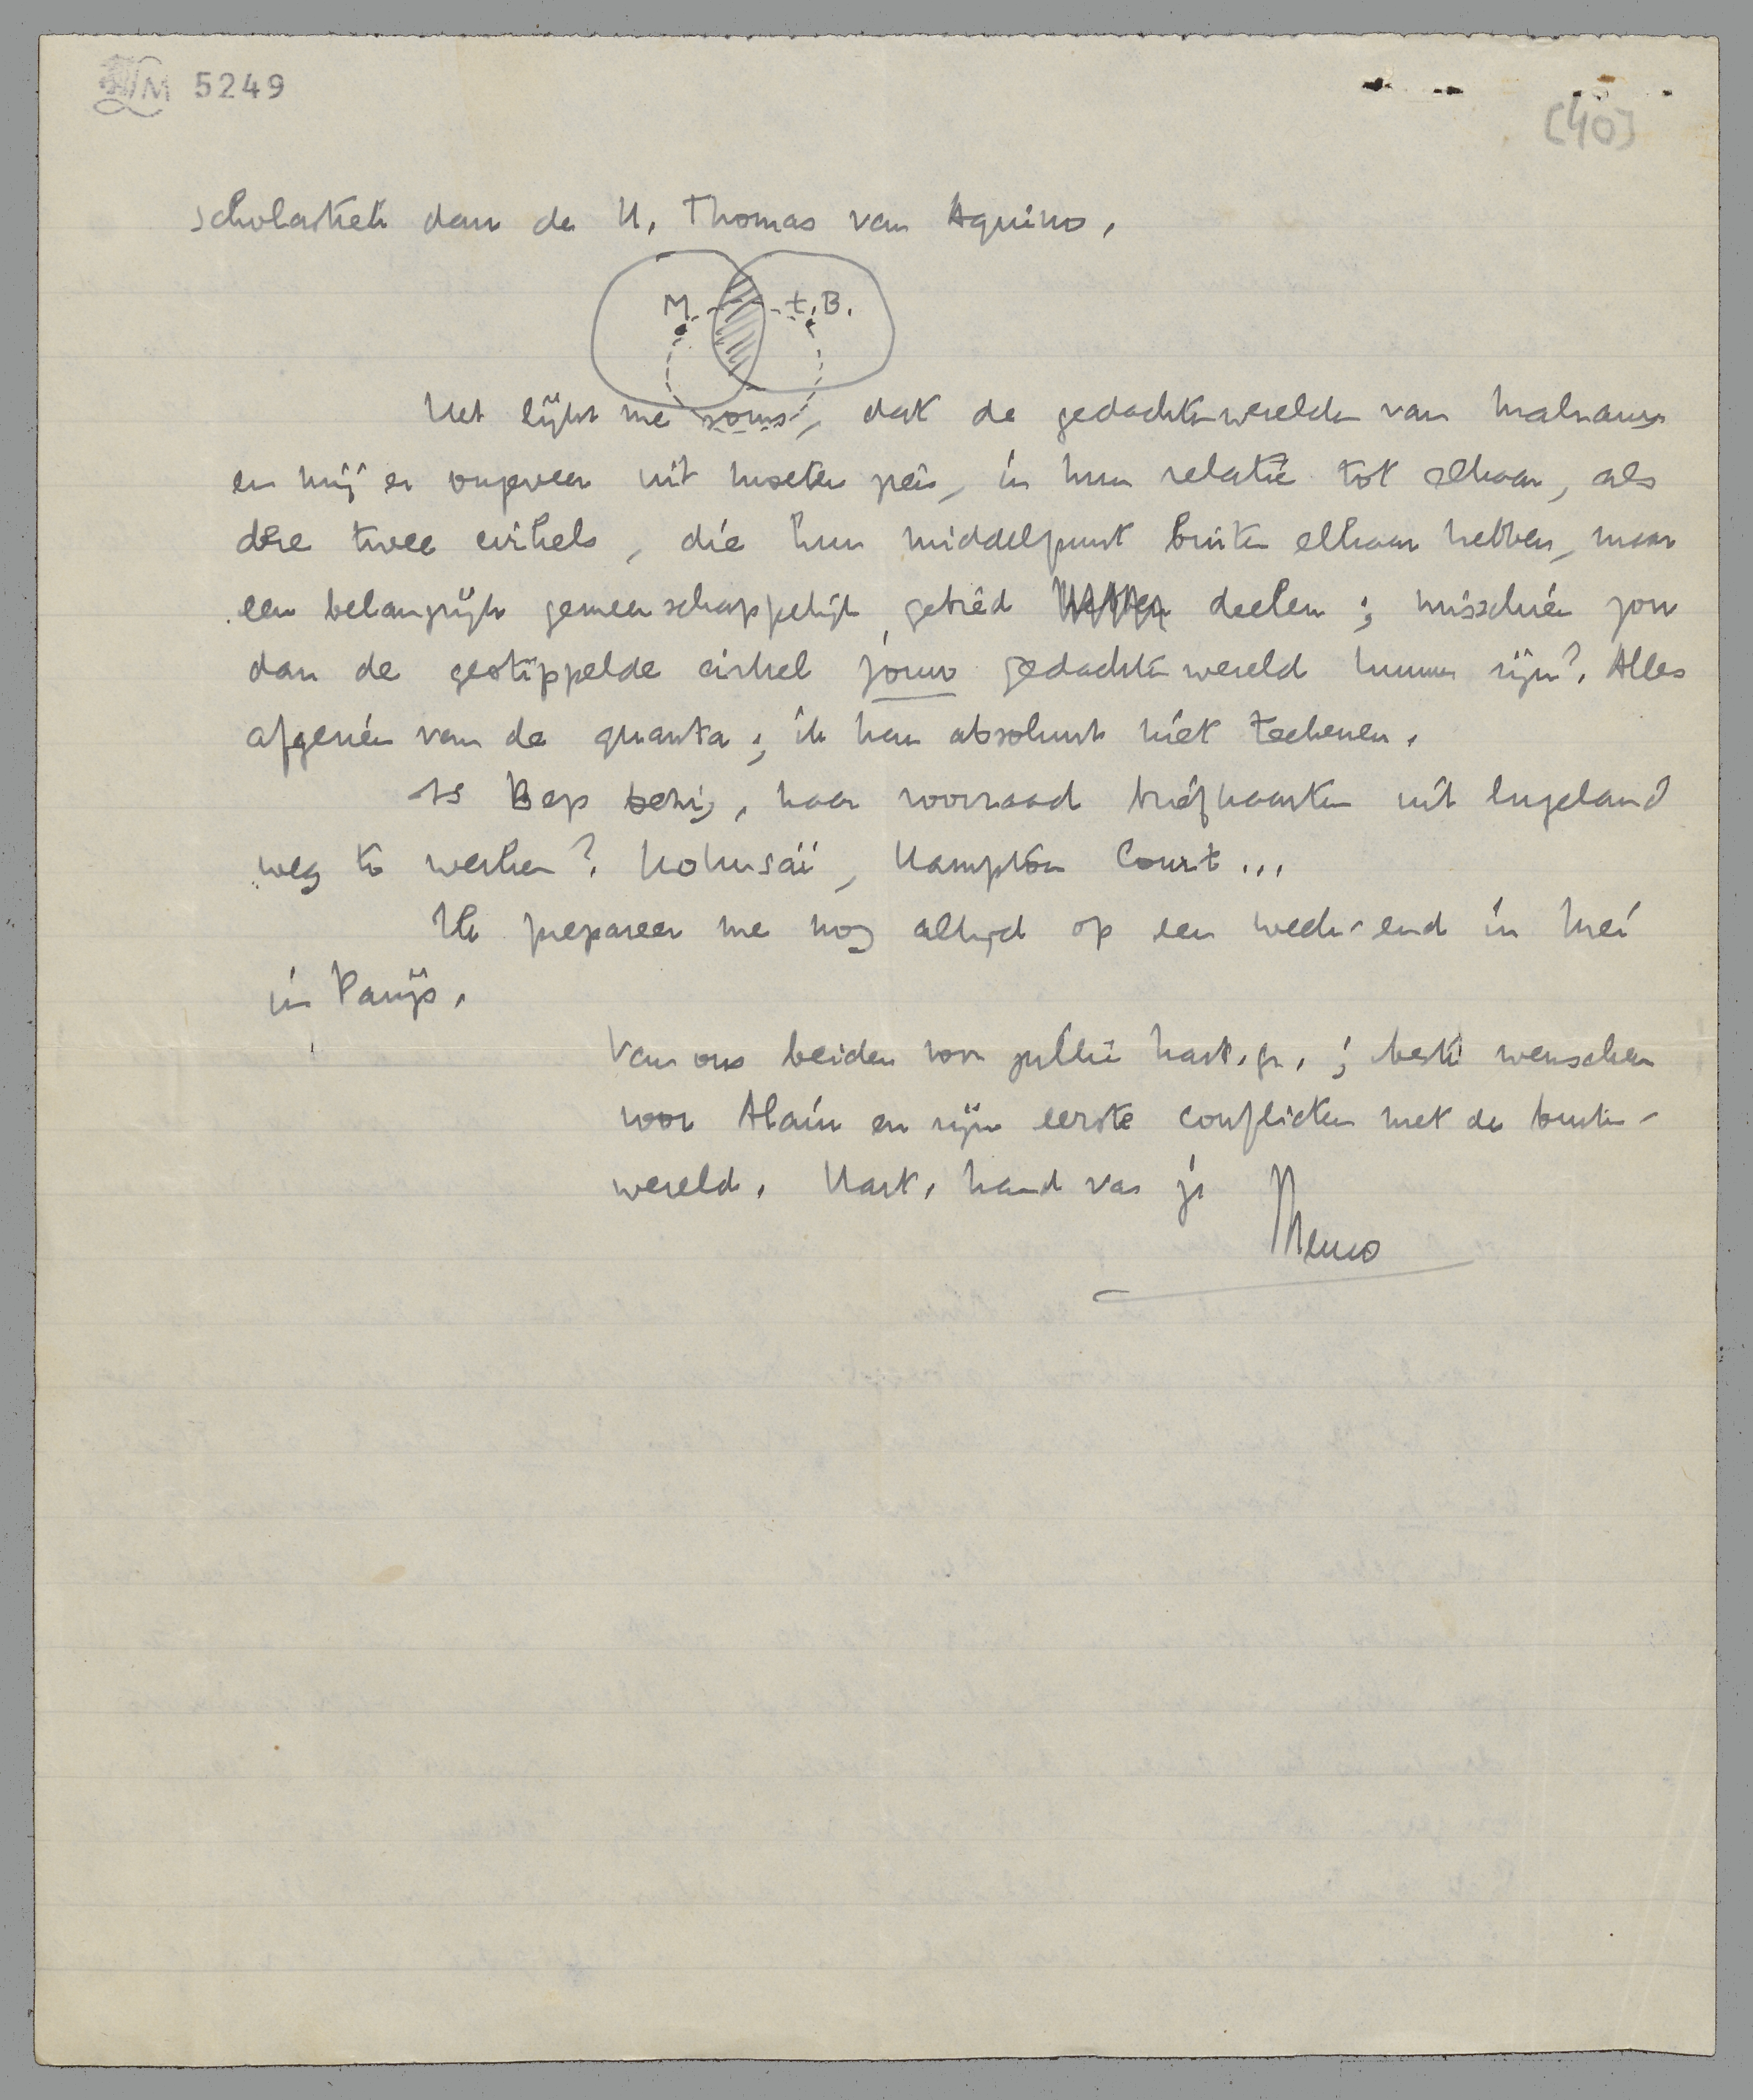 LM 5249
[40]
scholastiek dan de H. Thomas van Aquino.
M. t.B.
Het lijkt me soms, dat de gedachtenwerelden van Malraux
en mij er ongeveer uit moeten zien, in hun relatie tot elkaar, als
deze twee cirkels, die hun middelpunt buiten elkaar hebben, maar
een belangrijk gemeenschappelijk gebied deelen; misschien zou
dan de gestippelde cirkel jouw gedachtenwereld kunnen zijn? Alles
afgezien van de quanta; ik kan absoluut niet teekenen.
Is Bep bezig, haar voorraad briefkaarten uit Engeland
weg te werken? Hokusaï, Hampton Court...
Ik prepareer me nog altijd op een week-end in Mei
in Parijs.
Van ons beiden voor jullie hart. gr.; beste wenschen
voor Alain en zijn eerste conflicten met de buiten-
wereld. Hart. hand van je
Menno